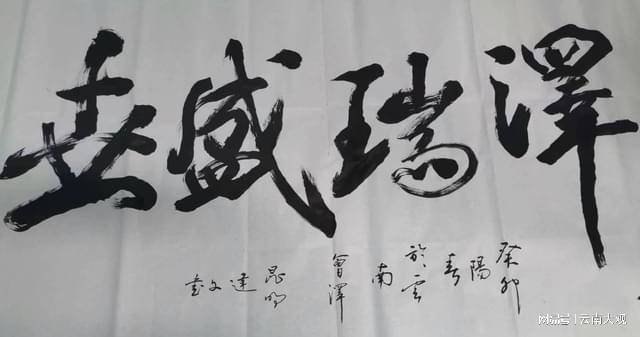 澤瑞盛世
癸卯陽春於雲南會澤昆明達文書
搜狐号|云南大观